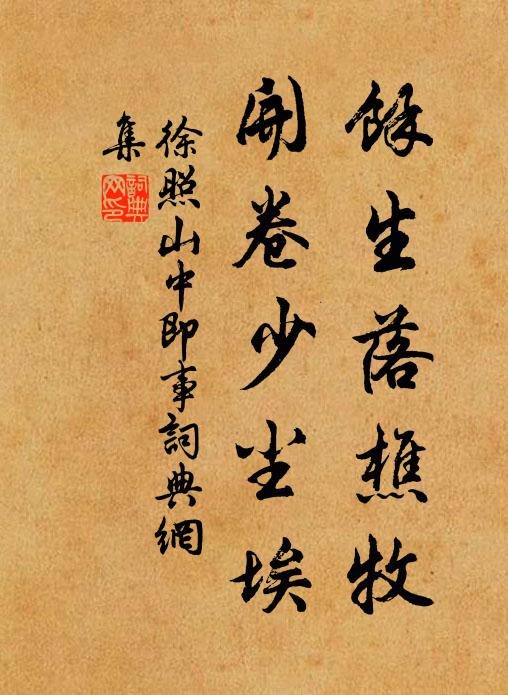 餘生落樵牧
開卷少尘埃
徐照山中即事詞典網
集
詞典
网印